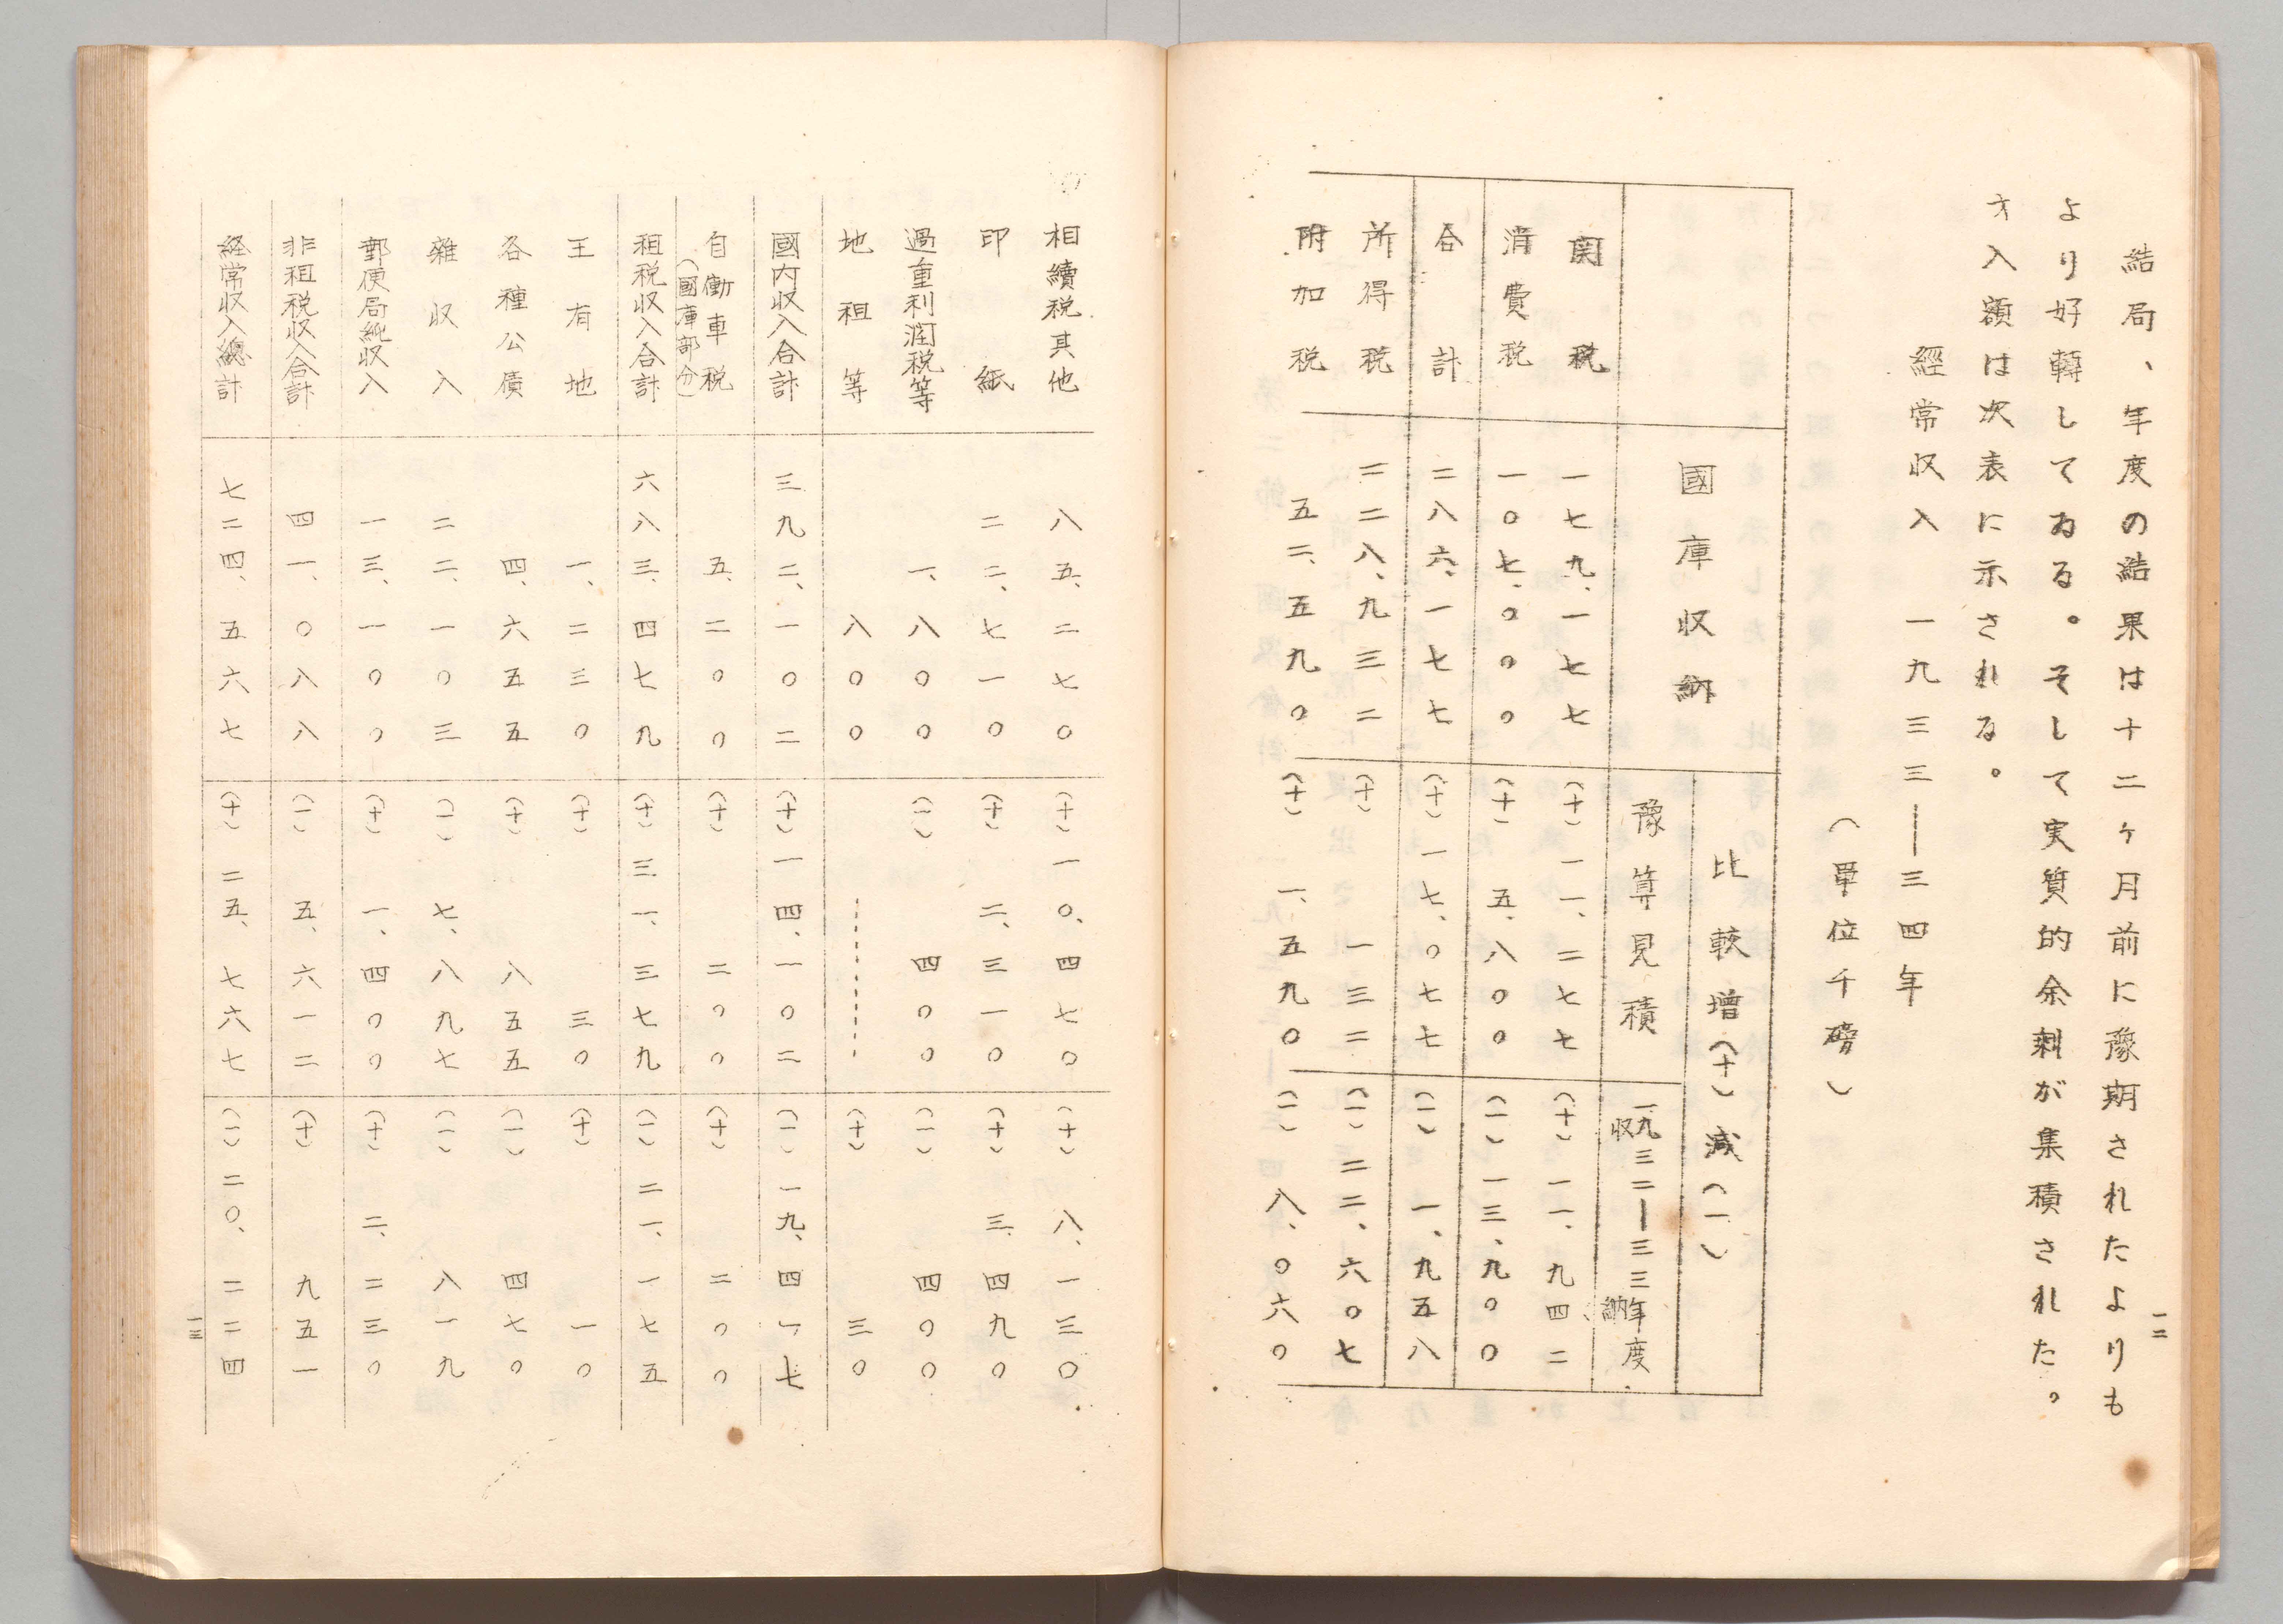 結局、年度の結果は十二ヶ月前に豫期されたよりも
より好轉してゐる。そして実質的余剰が集積された。
才入額は次表に示される。
經常収入 一九三三―三四年
(單位千磅)
比較增(十)減(一)
國庫収納 豫算見積 一九三二―三三年度収納
関税 一七九、一七七 (十)一一、二七七 (十)一一、九四二
消費税 一〇七、〇〇〇 (十)五、八〇〇 (一)一三、九〇〇
合計 二八六、一七七 (十)一七、〇七七 (一)一、九五八
所得税 二二八、九三二 (十)一三二 (一)二二、六〇七
附加税 五二、五九〇 (十)一、五九〇 (一)八、〇六〇
一二
相續税其他 八五、二七〇 (十)一〇、四七〇 (十)八、一三〇
印紙 二二、七一〇 (十)二、三一〇 (十)三、四九〇
過重利潤税等 一、八〇〇 (一)四〇〇 (一)四〇〇
地租等 八〇〇 -------- (十)三〇
國内収入合計 三九二、一〇二 (十)一四、一〇二 (一)一九、四一七
自働車税(國庫部分) 五、二〇〇 (十)二〇〇 (十)二〇〇
租税収入合計 六八三、四七九 (十)三一、三七九 (一)二一、一七五
王有地 一、二三〇 (十)三〇 (十)一〇
各種公債 四、六五五 (十)八五五 (一)四七〇
雜収入 二二、一〇三 (一)七、八九七 (一)八一九
郵便局純収入 一三、一〇〇 (十)一、四〇〇 (十)二、二三〇
非租税収入合計 四一、〇八八 (一)五、六一二 (十)九五一
経常収入總計 七二四、五六七 (十)二五、七六七 (一)二〇、二二四
一三